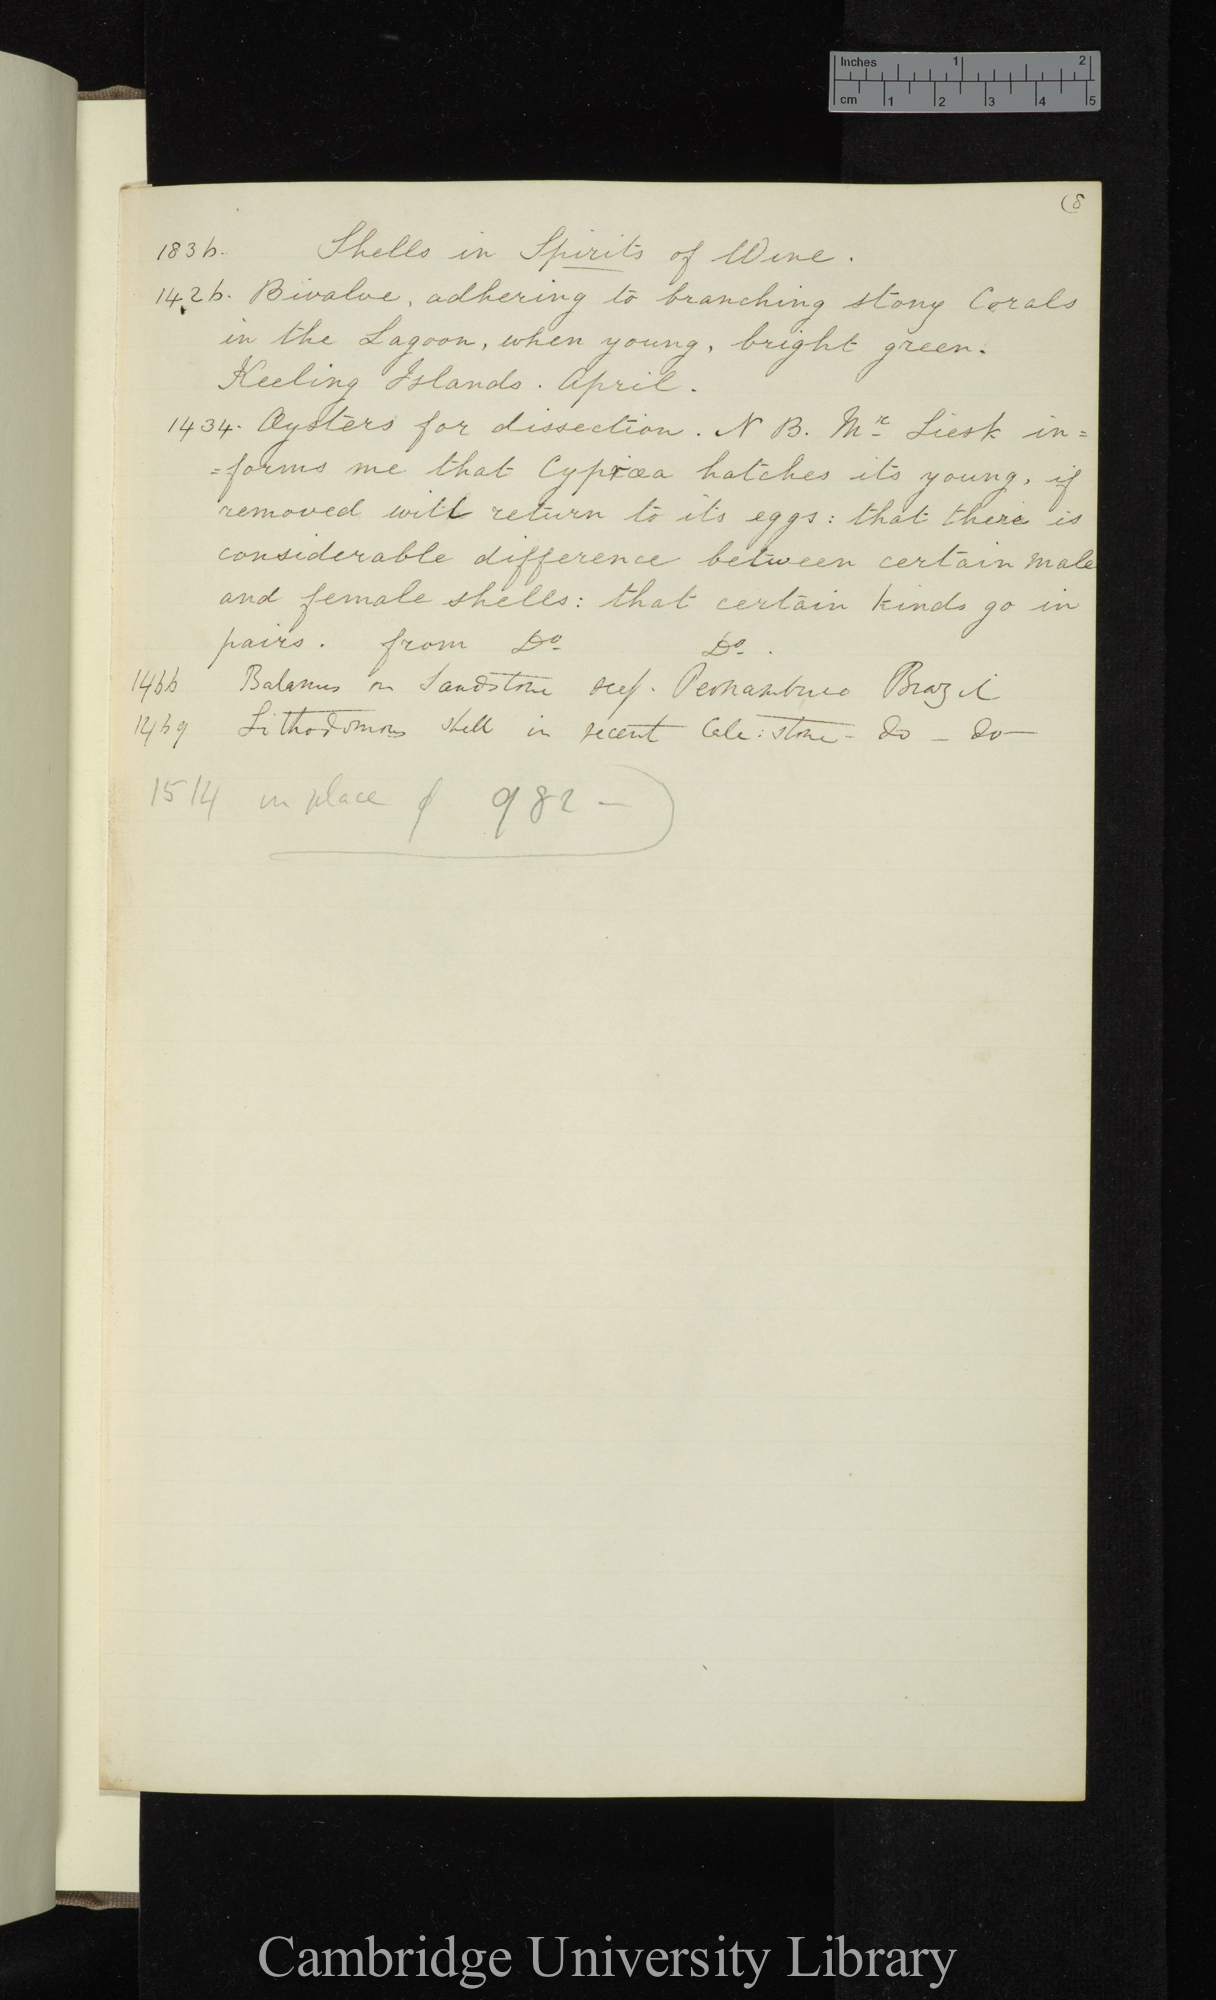 Inches 1 2
cm 1 2 3 4 5
(8
1836. Shells in Spirits of Wine.
1426. Bivalve, adhering to branching stony Corals
in the Lagoon, when young, bright green.
Keeling Islands. April.
1434. Oysters for dissection. N B. Mr. Liesk in=
=forms me that Cypræa hatches its young, if
removed will return to its eggs: that there is
considerable difference between certain male
and female shells: that certain kinds go in
pairs. from Do. Do.
1466 Balanus on Sandstone reef. Pernambuco Brazil
1469 Lithodomous shell in recent Calc: stone - do - do -
1514 in place of 982 - )
Cambridge University Library